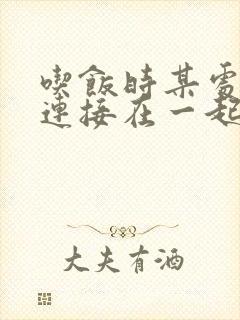 喫飯時某處
連接在一起
大夫有酒